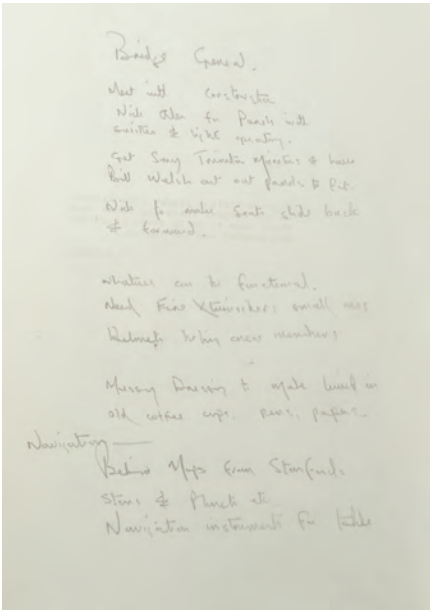 Bridge General.
Meet with Construction
Nick Allen for Panels with
switches & light operating.
Get Sony Trinitron Monitors & have
Bill Welsh cut out panels to fit.
Nick to make Seats slide back
& forward.
whatever can be functional.
Need Fire Xtinguishers small ones
Helmets for crew members
Messy Dressing to make lived in
old coffee cups. pens, papers.
Navigation
Maps from Stanfords
Stars & Planets etc
Navigation instruments for table